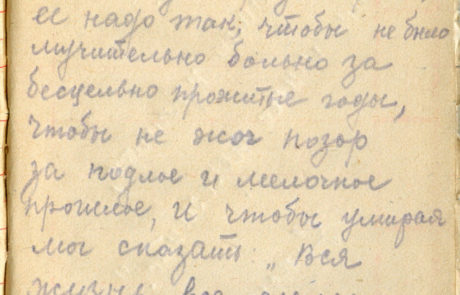 ее надо так, чтобы не было
мучительно больно за
бесцельно прожитые годы,
чтобы не жог позор
за подлое и мелочное
прошлое, и чтобы умирая
мог сказать „Вся
жизнь все